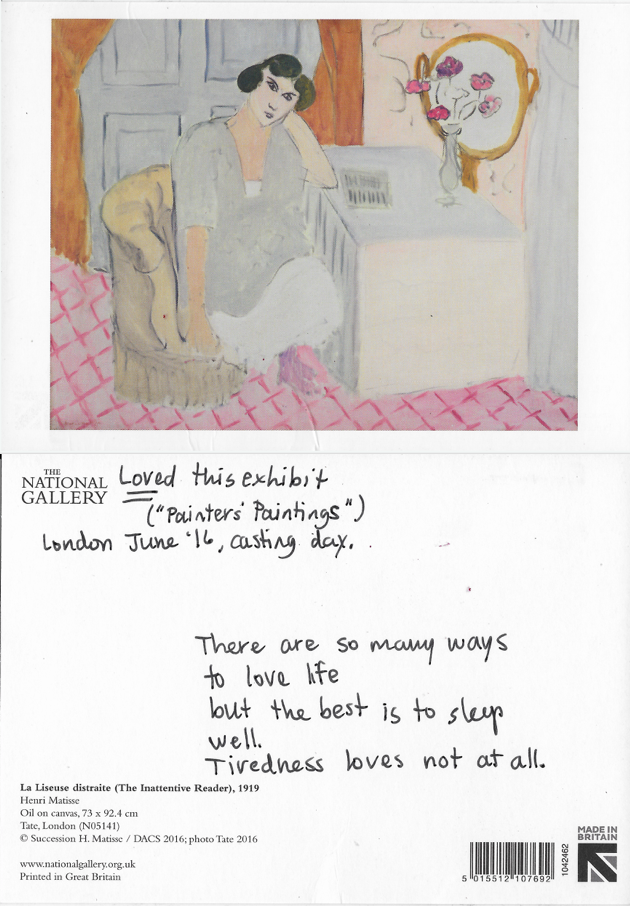 THE
NATIONAL
GALLERY
Loved this exhibit
("Painters' Paintings")
London June '16, casting day.
There are so many ways
to love life
but the best is to sleep
well.
Tiredness loves not at all.
La Liseuse distraite (The Inattentive Reader), 1919
Henri Matisse
Oil on canvas, 73 x 92.4 cm
Tate, London (N05141)
© Succession H. Matisse / DACS 2016; photo Tate 2016
www.nationalgallery.org.uk
Printed in Great Britain
5 015512 107692
1042462
MADE IN
BRITAIN